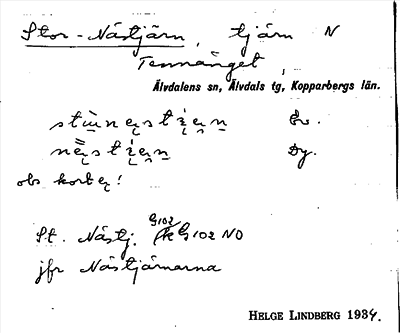 Stor-Nästjärn, tjärn N
Tennänget,
Älvdalens sn, Älvdals tg, Kopparbergs län.
Dy.
obs kort ę!
St. Nästj. G102 NO
jfr Nästjärnarna
HELGE LINDBERG 1934.